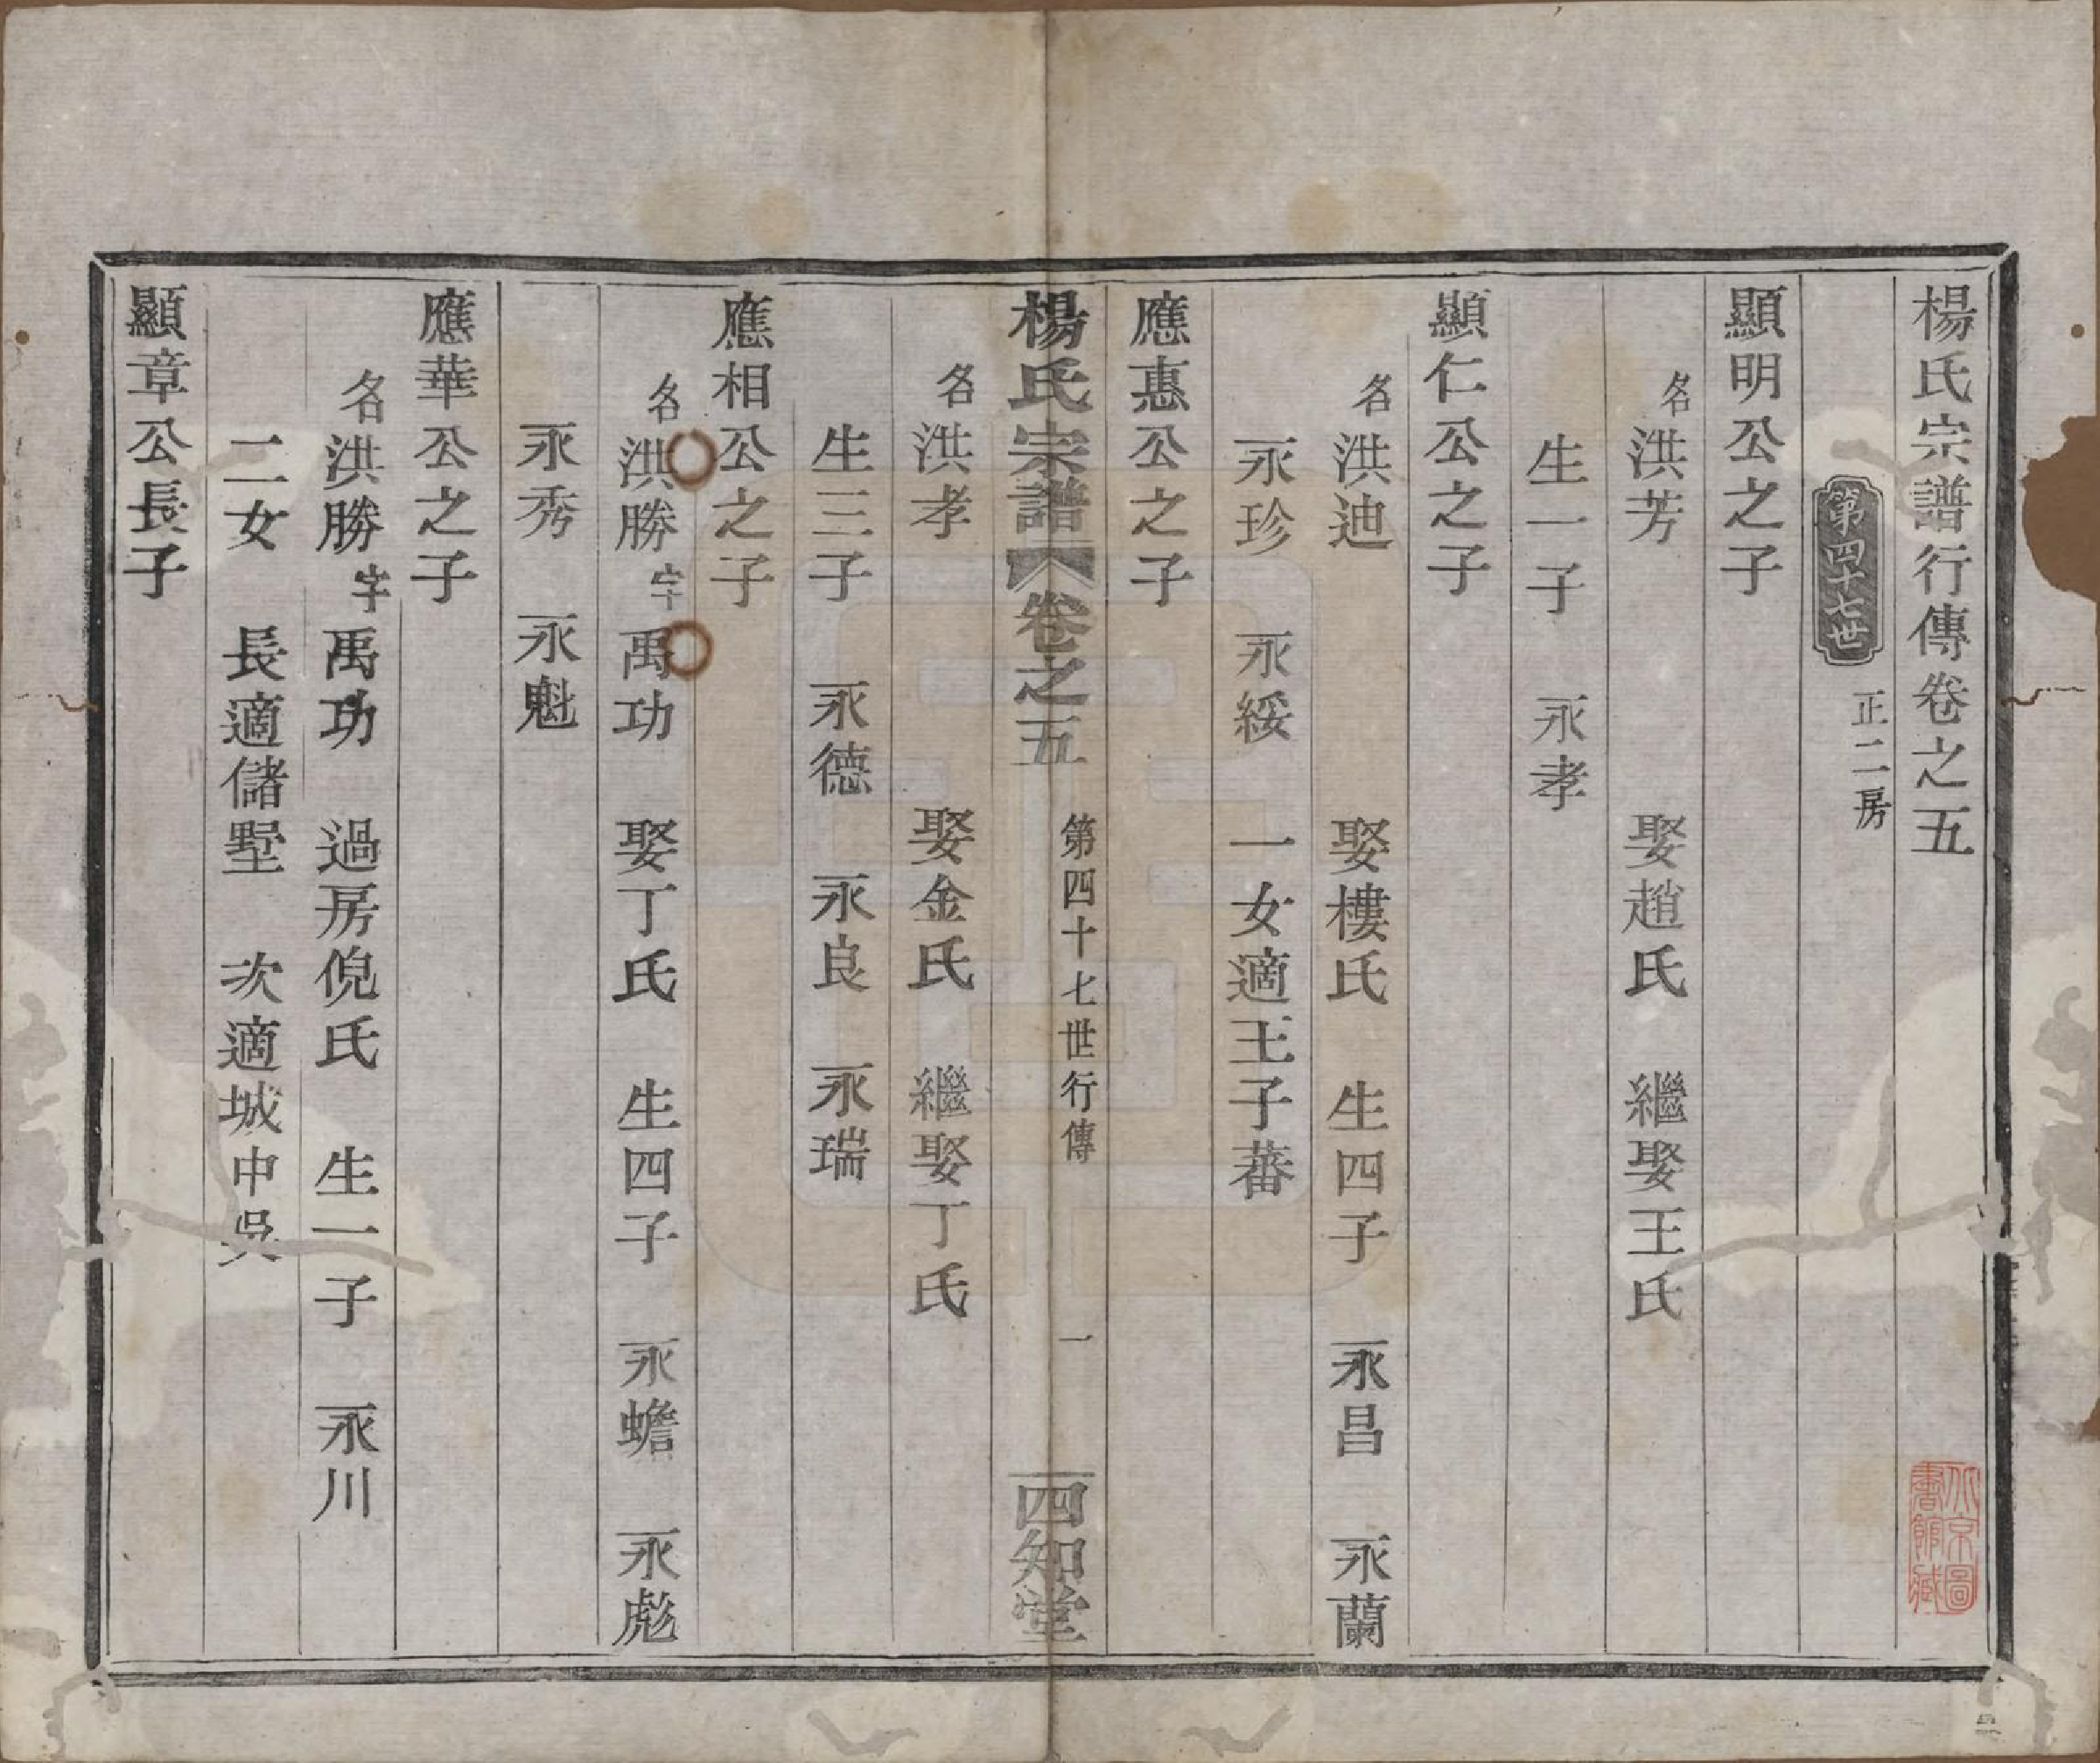 楊氏宗譜行傳卷之五
第四十七世 正二房
顯明公之子
名洪芳 娶趙氏 繼娶王氏
生一子 永孝
顯仁公之子
名洪迪 娶樓氏 生四子 永昌 永蘭
永珍 永綏 一女適王子蕃
應惠公之子
楊氏宗譜 卷之五 第四十七世行傳 一 四知堂
名洪孝 娶金氏 繼娶丁氏
生三子 永德 永良 永瑞
應相公之子
名洪勝 字禹功 娶丁氏 生四子 永蟾 永彪
永秀 永魁
應華公之子
名洪勝 字禹功 過房倪氏 生一子 永川
二女 長適儲墅 次適城中吳
顯章公長子
北京圖書館藏